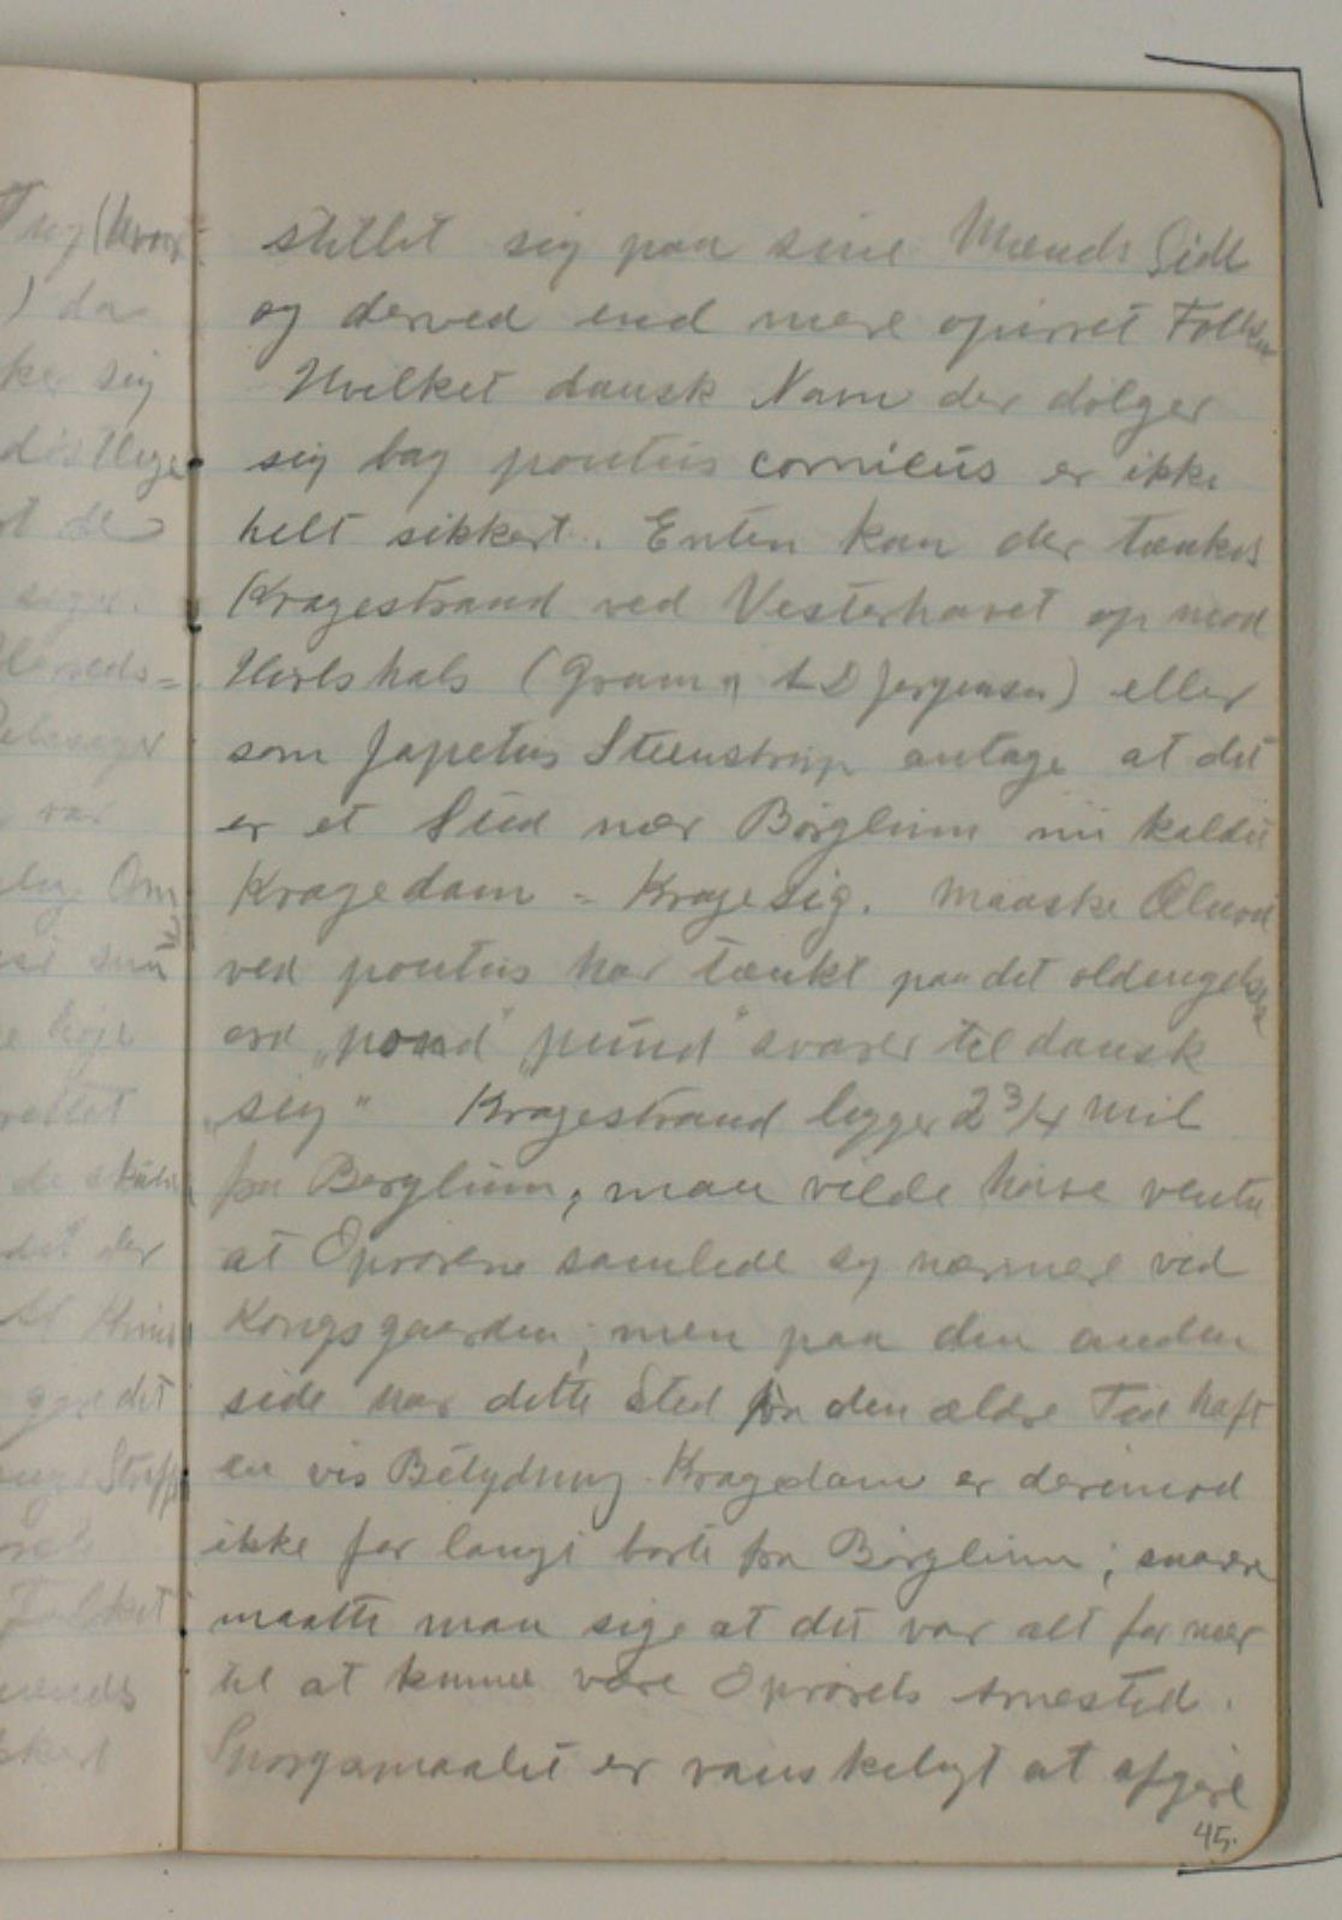 stillet sig paa sine Mænds Side
og derved end mere opirret Folket
Hvilket dansk Navn der dølger
sig bag pontus cornicus er ikke
helt sikkert. Enten kan der tænkes
Kragestrand ved Vesterhavet op mod
Hirtshals (Gram og A D Jørgensen) eller
som Japetus Steenstrup antage at det
er et Sted nær Børglum nu kaldet
Kragedam = Kragesig. Maaske Ælnod
ved pontus har tænkt paa det oldengelske
ord „pond" „pund" svarer til dansk
„sig" Kragestrand ligger 2 3/4 Mil
fra Børglum, man vilde have ventet
at Oprørerne samlede sig nærmere ved
Kongsgaarden; men paa den anden
side har dette Sted fra den ældre Tid haft
en vis Betydning. Kragedam er derimod
ikke for langt borte fra Børglum; snarere
maatte man sige at det var alt for nær
til at kunne være Oprørets Arnested.
Spørgsmaalet er vanskeligt at afgøre
45.